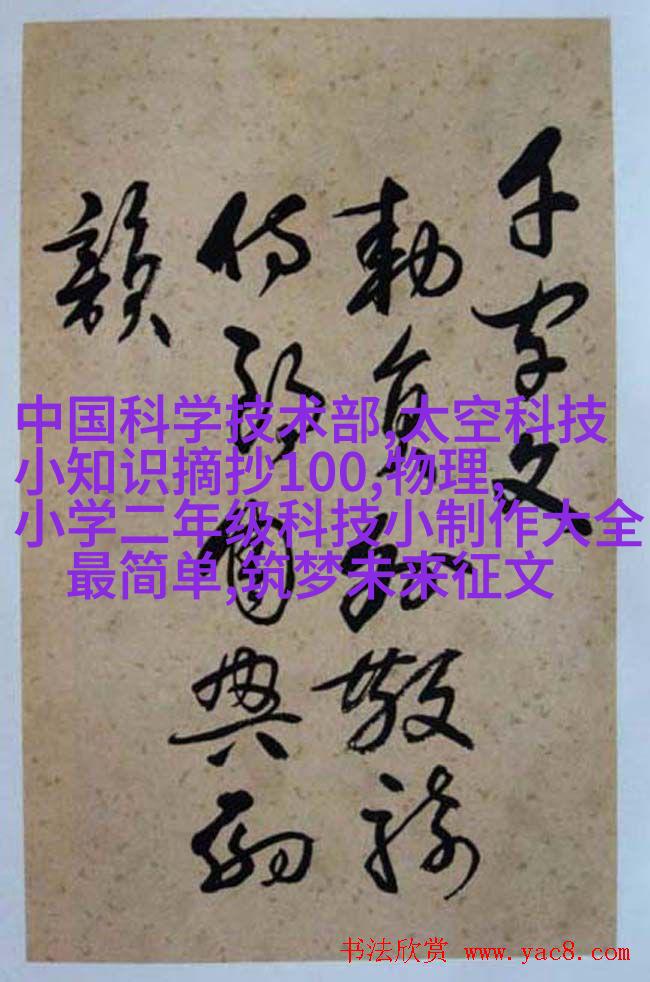 千字文
勅員外散騎
侍郎周興嗣
韻
中国科学技术部,太空科技
小知识摘抄100,物理,
小学二年级科技小制作大全
最简单,筑梦未来征文
书法欣赏 www.yac8.com